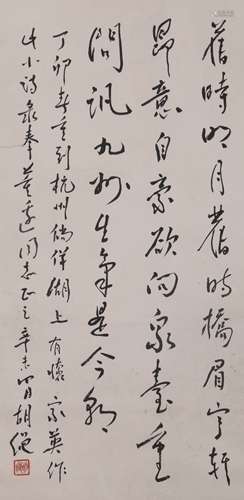 舊時明月舊時橋眉宇軒
昂意自豪欲向泉臺重
問訊九州生氣是今朝
丁卯春重到杭州徜徉湖上有懷家英作
此小詩錄奉董邊同志正之辛未四月胡繩